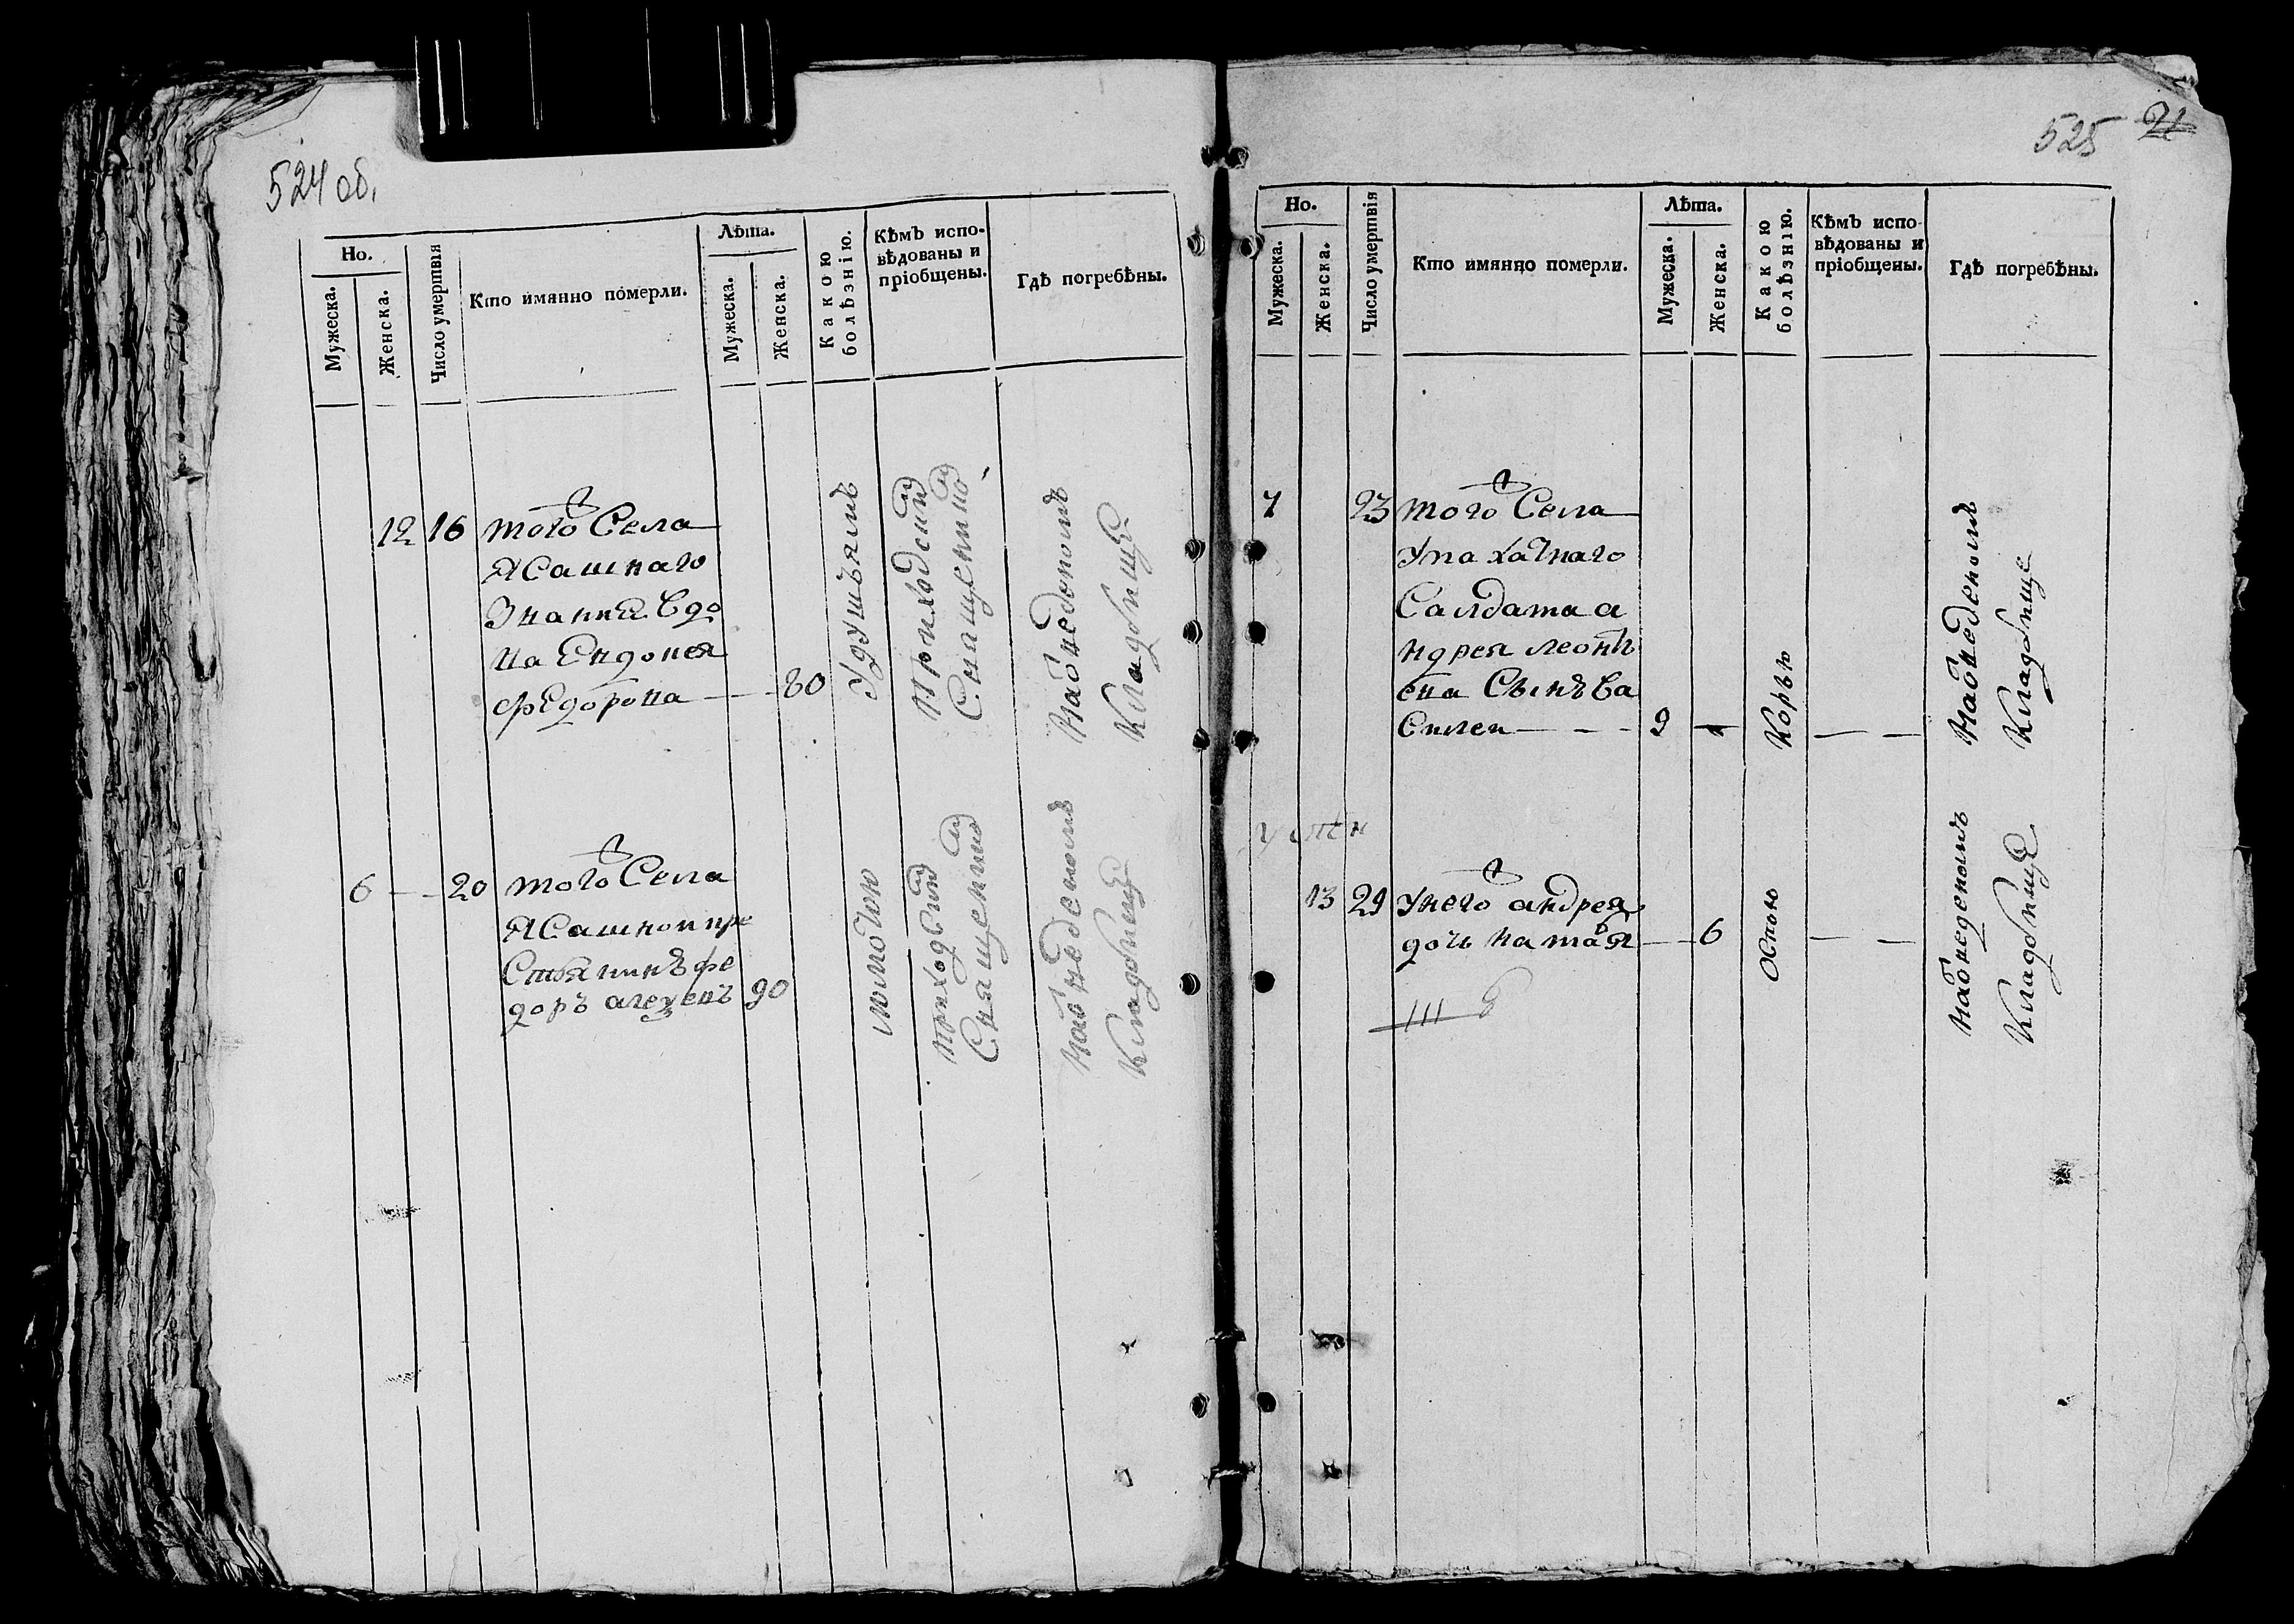 524 об.
Но.
Мужеска.
Женска.
Число умертвія
Кто имянно померли.
Лѣта.
Мужеска.
Женска.
Какою болѣзнію.
Кѣмъ испо-
вѣдованы и
пріобщены.
Гдѣ погребѣны.
12 16 того Села
Ясашнаго
Звания Вдо
ва Евдокея
федорова 80
Удушьямъ
Приходским
Священнико
На отведеномъ
Кладбище
6 20 того Села
Ясашнои кре
Стьянинъ фе
доръ алеѯевъ 90
Мокотою
приходским
Священнико
На отведеномъ
Кладбище
525 21
Но.
Мужеска.
Женска.
Число умертвія
Кто имянно померли.
Лѣта.
Мужеска.
Женска.
Какою болѣзнію.
Кѣмъ испо-
вѣдованы и
пріобщены.
Гдѣ погребѣны.
7 23 того Села
Упахатнаго
Салдата а
ндрея леонть
ева Сынъ Ва
Силеи 2
Корью
На отведеномъ
Кладбище
13 29 Унего андрея
дочь наталя 6
Оспою
На отведеномъ
Кладбище